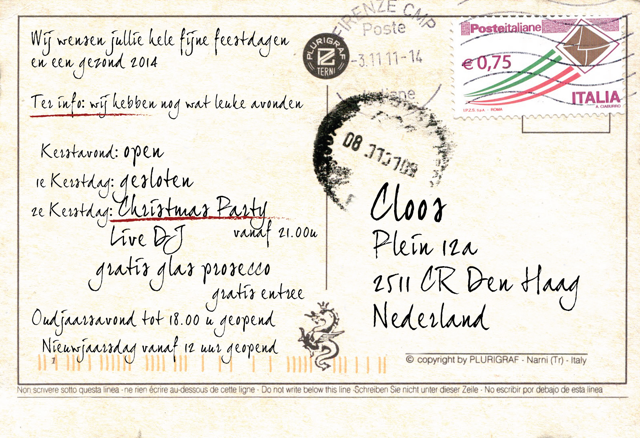 Wij wensen jullie hele fijne feestdagen
en een gezond 2014
Ter info: wij hebben nog wat leuke avonden
Kerstavond: open
1e Kerstdag: gesloten
2e Kerstdag: Christmas Party
Live DJ vanaf 21.00u
gratis glas prosecco
gratis entree
Oudjaarsavond tot 18.00 u geopend
Nieuwjaarsdag vanaf 12 uur geopend
PLURIGRAF
TERNI
FIRENZE CMP
Poste
-3.11 11-14
Italiane
Posteitaliane
€ 0,75
ITALIA
Cloos
Plein 12a
2511 CR Den Haag
Nederland
© copyright by PLURIGRAF - Narni (Tr) - Italy
Non scrivere sotto questa linea - ne rien écrire au-dessous de cette ligne - Do not write below this line -Schreiben Sie nicht unter dieser Zeile - No escribir por debajo de esta linea